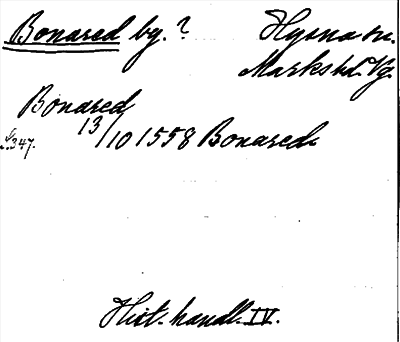 Bonared by. ? Hyssna sn.
Marks hd. Vg.
Bonared
S. 347. 13/10 1558 Bonared
Hist. handl. IV.